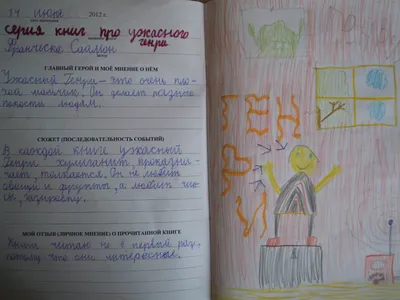 14 июня 2012 г.
серия книг про ужасного
Генри
Франческа Саймон
автор
ГЛАВНЫЙ ГЕРОЙ И МОЁ МНЕНИЕ О НЁМ
Ужасный Генри – это очень пло-
хой мальчик. Он делает разные
пакости людям.
СЮЖЕТ (ПОСЛЕДОВАТЕЛЬНОСТЬ СОБЫТИЙ)
В каждой книге ужасный
Генри хулиганит, проказни-
чает, толкается. Он не любит
овощи и фрукты, а любит чип-
сы, газировку.
МОЙ ОТЗЫВ (ЛИЧНОЕ МНЕНИЕ) О ПРОЧИТАННОЙ КНИГЕ
Книги читаю не 1 первый раз,
потому что они интересные.
ГЕН
РИ